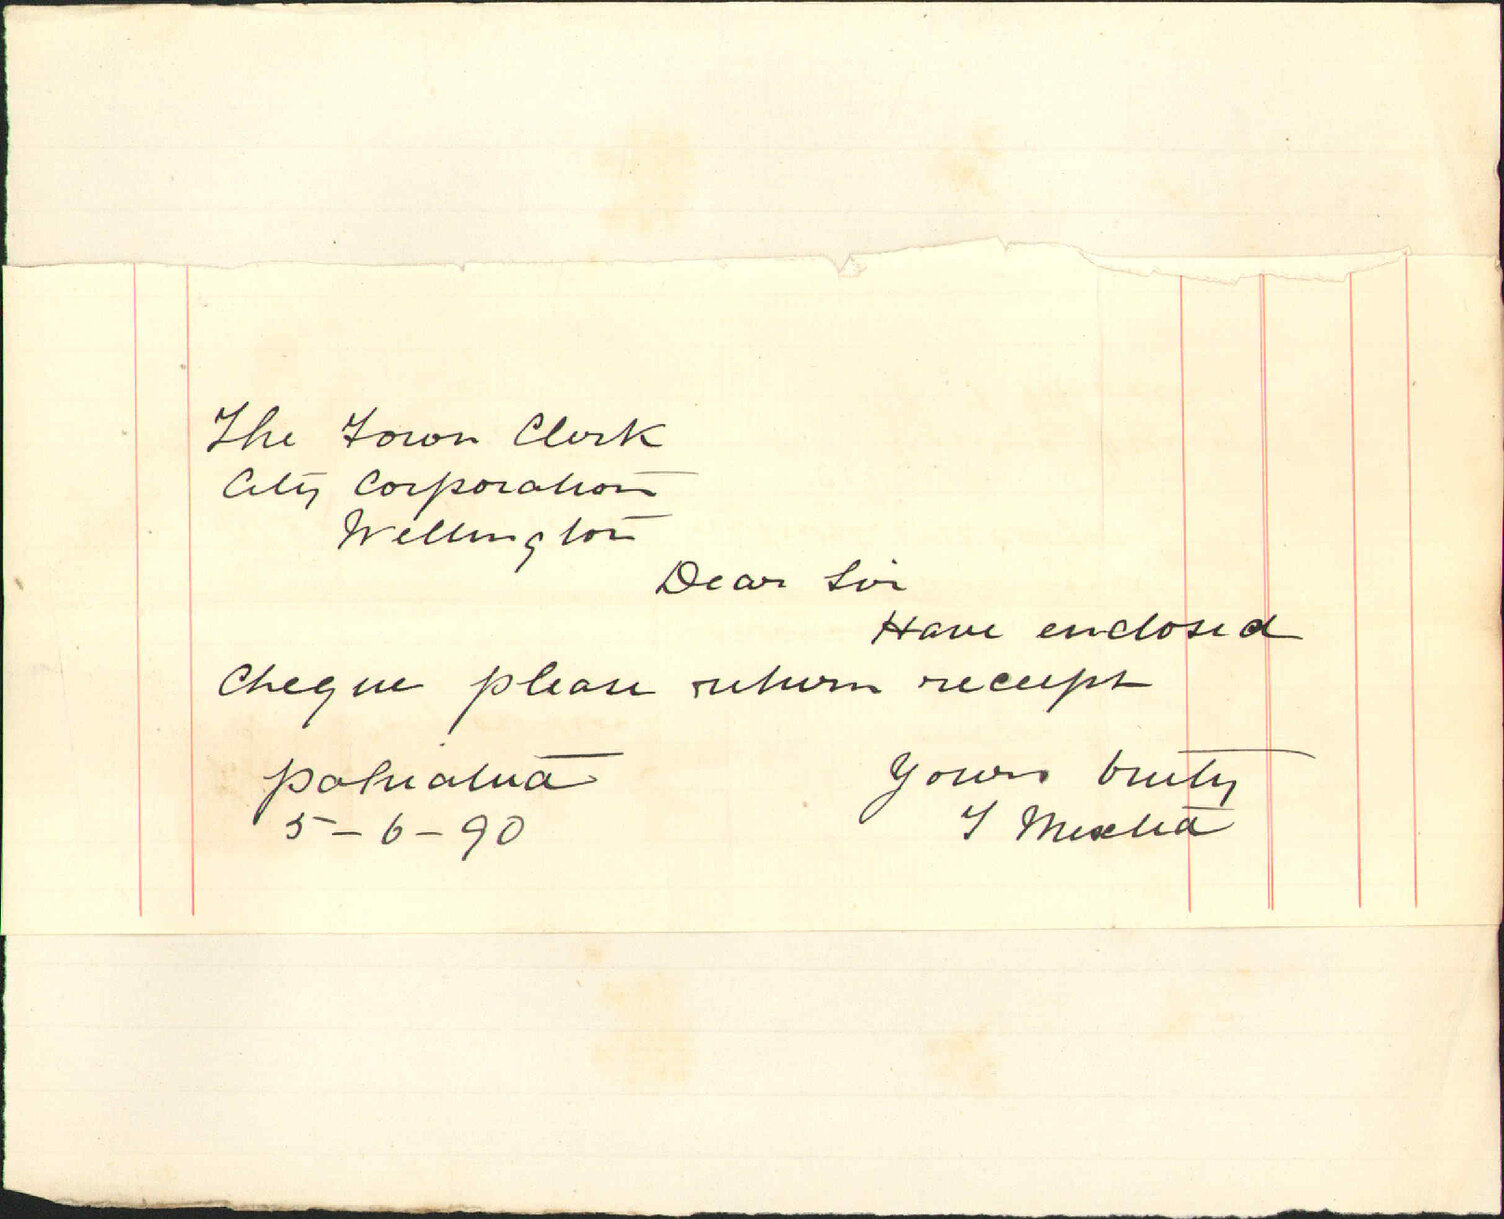 The Town Clerk
City Corporation
Wellington
Dear Sir
Have enclosed
Cheque please return receipt
Pahiatua
Yours truly
5-6-90